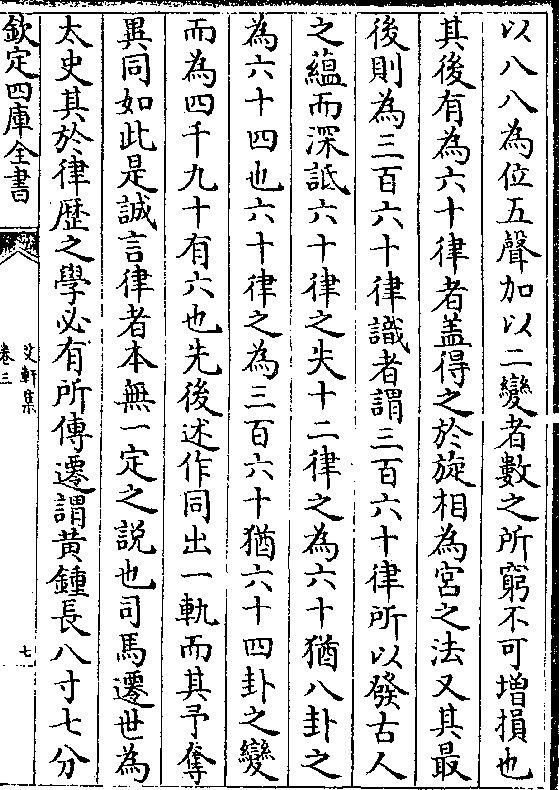 以八八為位五聲加以二變者數之所窮不可增損也
其後有為六十律者蓋得之於旋相為宮之法又其最
後則為三百六十律識者謂三百六十律所以發古人
之蘊而深詆六十律之失十二律之為六十猶八卦之
為六十四也六十律之為三百六十猶六十四卦之變
而為四千九十有六也先後述作同出一軌而其予奪
異同如此是誠言律者本無一定之說也司馬遷世為
太史其於律歴之學必有所傳遷謂黄鍾長八寸七分
欽定四庫全書
艾軒集
卷三
七